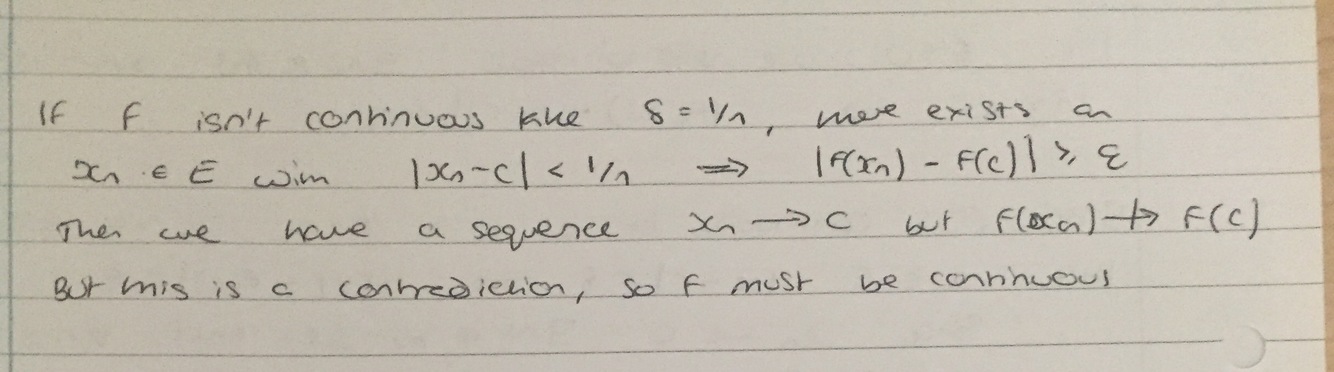 If f isn't continuous take δ = 1/n, there exists an
xn ∈ E with |xn - c| < 1/n ⟹ |f(xn) - f(c)| ⩾ ε
Then we have a sequence xn → c but f(xn) ↛ f(c)
But this is a contradiction, so f must be continuous